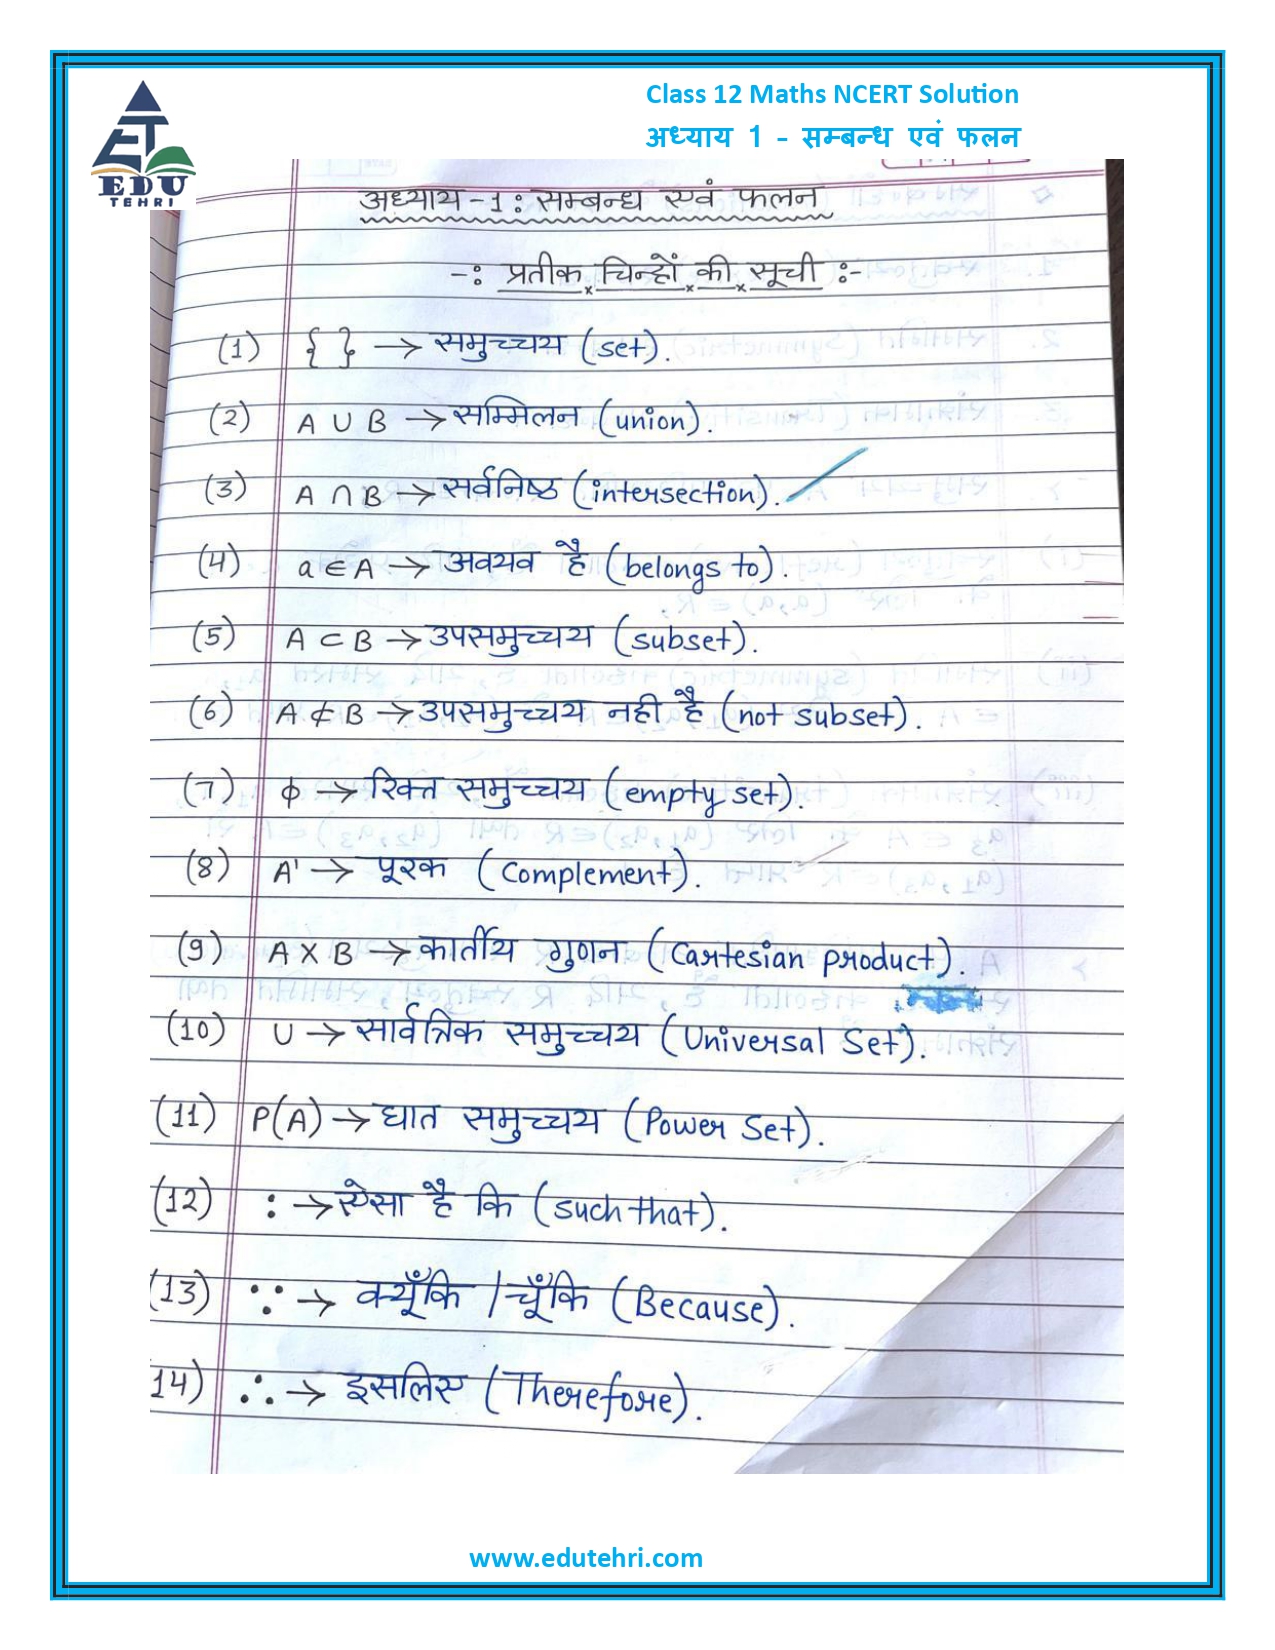 Class 12 Maths NCERT Solution
अध्याय 1 - सम्बन्ध एवं फलन
ET
EDU
TEHRI
अध्याय-1: सम्बन्ध एवं फलन
-: प्रतीक चिन्हों की सूची :-
(1) { } → समुच्चय (set).
(2) A ∪ B → सम्मिलन (union).
(3) A ∩ B → सर्वनिष्ठ (intersection).
(4) a ∈ A → अवयव है (belongs to).
(5) A ⊂ B → उपसमुच्चय (subset).
(6) A ⊄ B → उपसमुच्चय नही है (not subset).
(7) ϕ → रिक्त समुच्चय (empty set).
(8) A' → पूरक (Complement).
(9) A X B → कार्तीय गुणन (Cartesian product).
(10) U → सार्वत्रिक समुच्चय (Universal Set).
(11) P(A) → घात समुच्चय (Power Set).
(12) : → ऐसा है कि (such that).
(13) ∵ → क्यूँकि / चूँकि (Because).
14) ∴ → इसलिए (Therefore).
www.edutehri.com